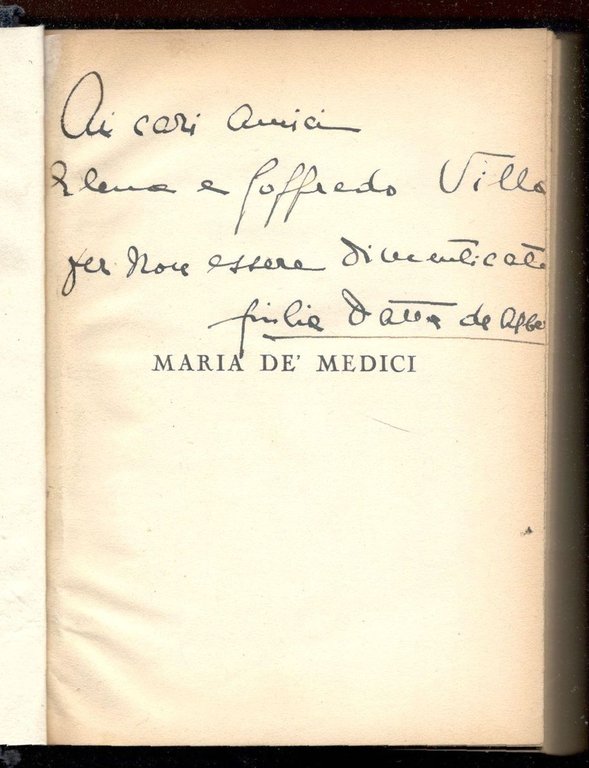 Ai cari amici
Elena e Goffredo Villa
per non essere dimenticata
Giulia Datta de Albe
MARIA DE' MEDICI